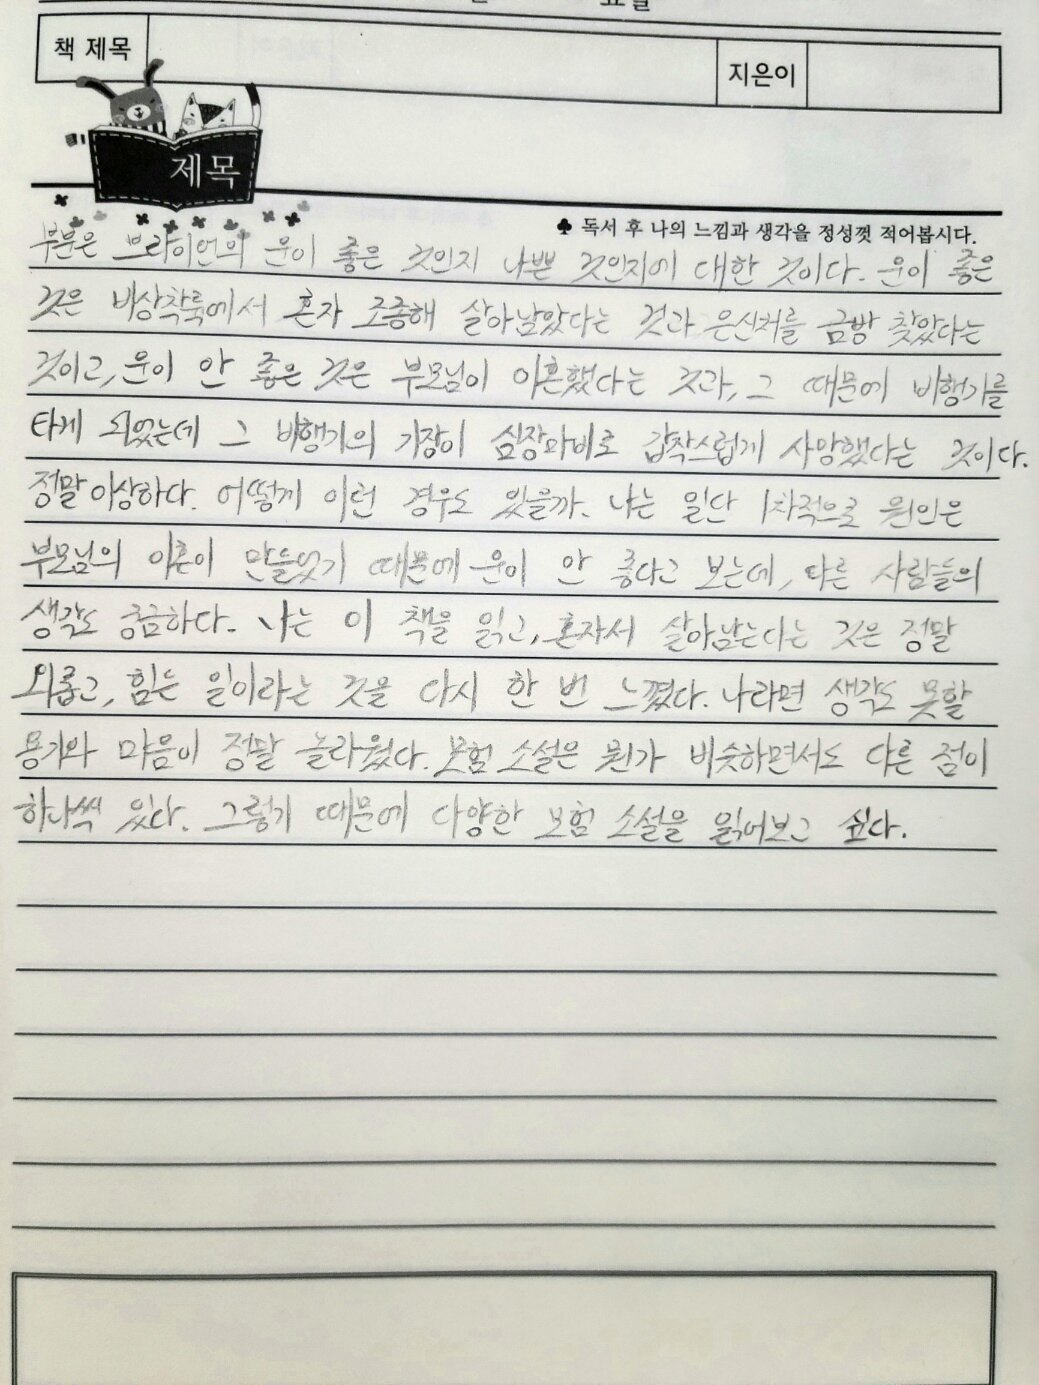 요일
책 제목
지은이
제목
♣ 독서 후 나의 느낌과 생각을 정성껏 적어봅시다.
부분은 브라이언의 운이 좋은 것인지 나쁜 것인지에 대한 것이다. 운이 좋은
것은 비상착륙에서 혼자 조종해 살아남았다는 것과 은신처를 금방 찾았다는
것이고, 운이 안 좋은 것은 부모님이 이혼했다는 것과, 그 때문에 비행기를
타게 되었는데 그 비행기의 기장이 심장마비로 갑작스럽게 사망했다는 것이다.
정말 이상하다. 어떻게 이런 경우도 있을까. 나는 일단 1차적으로 원인은
부모님의 이혼이 만들었기 때문에 운이 안 좋다고 보는데, 다른 사람들의
생각도 궁금하다. 나는 이 책을 읽고, 혼자서 살아남는다는 것은 정말
외롭고, 힘든 일이라는 것을 다시 한 번 느꼈다. 나라면 생각도 못할
용기와 마음이 정말 놀라웠다. 모험 소설은 뭔가 비슷하면서도 다른 점이
하나씩 있다. 그렇기 때문에 다양한 모험 소설을 읽어보고 싶다.